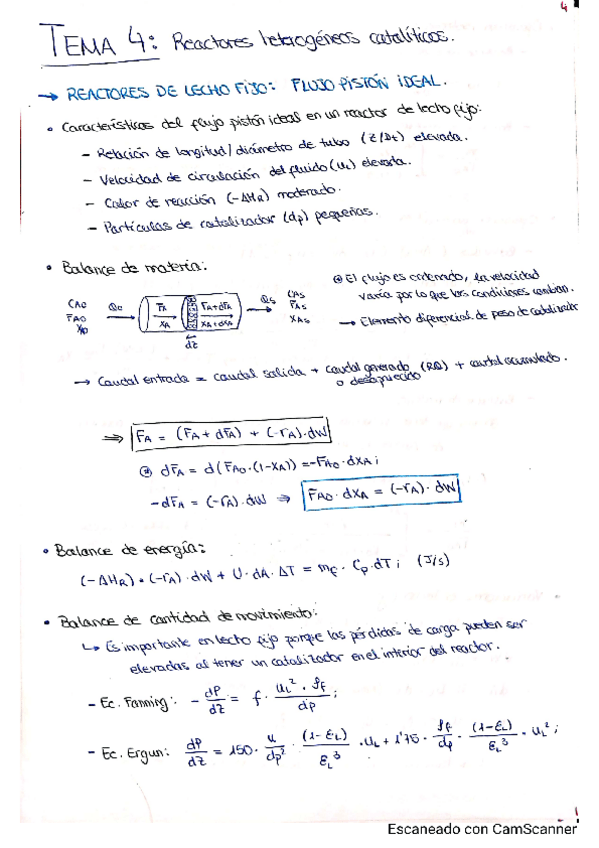 4
TEMA 4: Reactores heterogéneos catalíticos.
→ REACTORES DE LECHO FIJO: FLUJO PISTÓN IDEAL.
• Características del flujo pistón ideal en un reactor de lecho fijo:
- Relación de longitud/diámetro de tubo (Z/Dt) elevada.
- Velocidad de circulación del fluido (uL) elevada.
- Calor de reacción (-ΔHR) moderado.
- Partículas de catalizador (dp) pequeñas.
• Balance de materia:
CA0 FA0 X0 Q0 FA XA FA+dFA XA+dXA dz Qs CAS FAS XAS
El flujo es ordenado, la velocidad
varía por lo que las condiciones cambian.
→ Elemento diferencial de peso de catalizador
→ Caudal entrada = caudal salida + caudal generado (RQ) + caudal acumulado.
o desaparecido
⇒ FA = (FA + dFA) + (-rA)·dW
dFA = d(FA0·(1-XA)) = -FA0·dXA;
-dFA = (-rA)·dW ⇒ FA0·dXA = (-rA)·dW
• Balance de energía:
(-ΔHR)·(-rA)·dW + U·dA·ΔT = mf·Cp·dT; (J/s)
• Balance de cantidad de movimiento:
↳ Es importante en lecho fijo porque las pérdidas de carga pueden ser
elevadas al tener un catalizador en el interior del reactor.
- Ec. Fanning: -dP/dz = f · uL²·ρf/dp;
- Ec. Ergun: dP/dz = 150 · u/dp² · (1-εL)/εL³ · uL + 1'75 · ρf/dp · (1-εL)/εL³ · uL²;
Escaneado con CamScanner